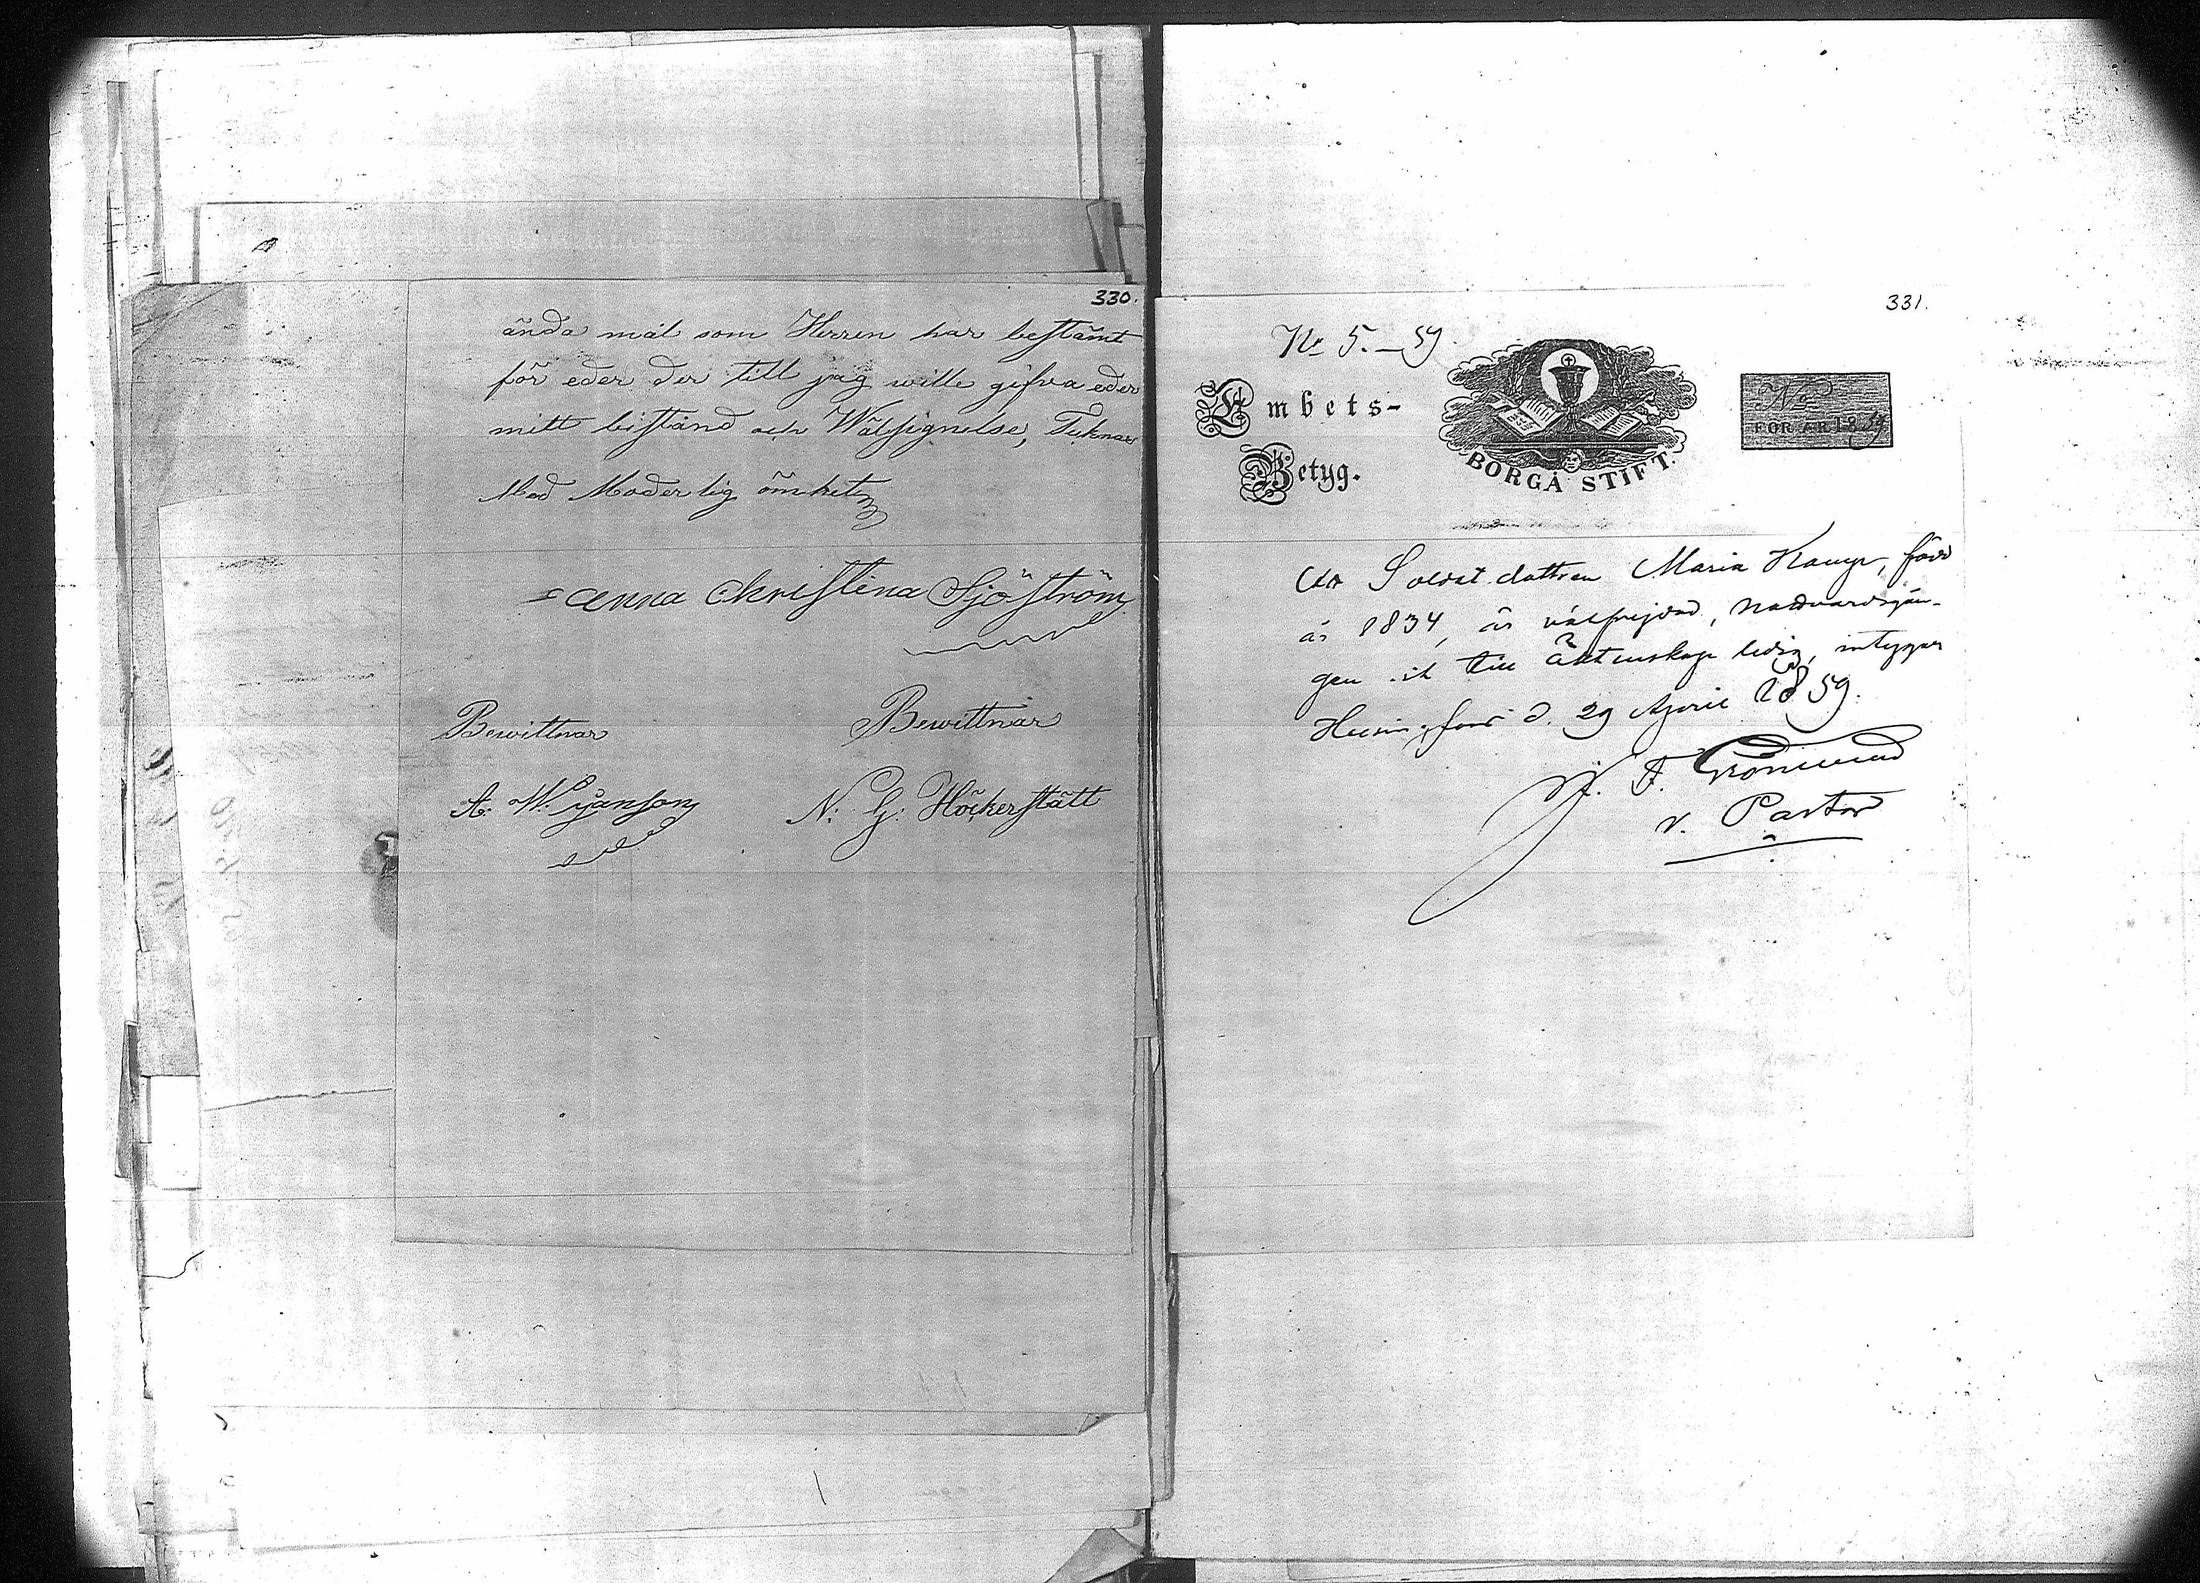 330.
ända mål som Herren har bestämt
för eder der till jag wille gifva eder
mitt bistånd och Wälsignelse, Teknar
Med Moderlig ömhet
Anna Christina Sjöström
Bewittnar
Bewittnar
A. W. Janson
N: G: Höckerstätt
331.
No 5.–59.
Embets-
Betyg.
BORGÅ STIFT.
No
FÖR ÅR 1859
Att Soldat dottren Maria Kamp, född
år 1834, är välfrejdad, nattvardsgån-
gen och till äktenskap ledig, intygar
Helsingfors d. 29 April 1859.
v. Pastor